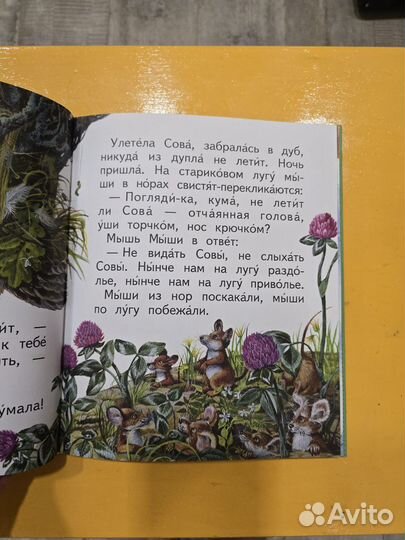 ит, —
к тебе́
ить, —
у́мала!
Улете́ла Сова́, забрала́сь в дуб,
никуда́ из дупла́ не лети́т. Ночь
пришла́. На старико́вом лугу́ мы́-
ши в но́рах свистя́т-перекликаются:
— Погляди́-ка, кума́, не лети́т
ли Сова́ — отча́янная голова́,
у́ши торчко́м, нос крючко́м?
Мышь Мы́ши в отве́т:
— Не вида́ть Совы́, не слыха́ть
Совы́. Ны́нче нам на лугу́ раздо́-
лье, ны́нче нам на лугу́ приво́лье.
Мы́ши из нор поскака́ли, мы́ши
по лу́гу побежа́ли.
Avito